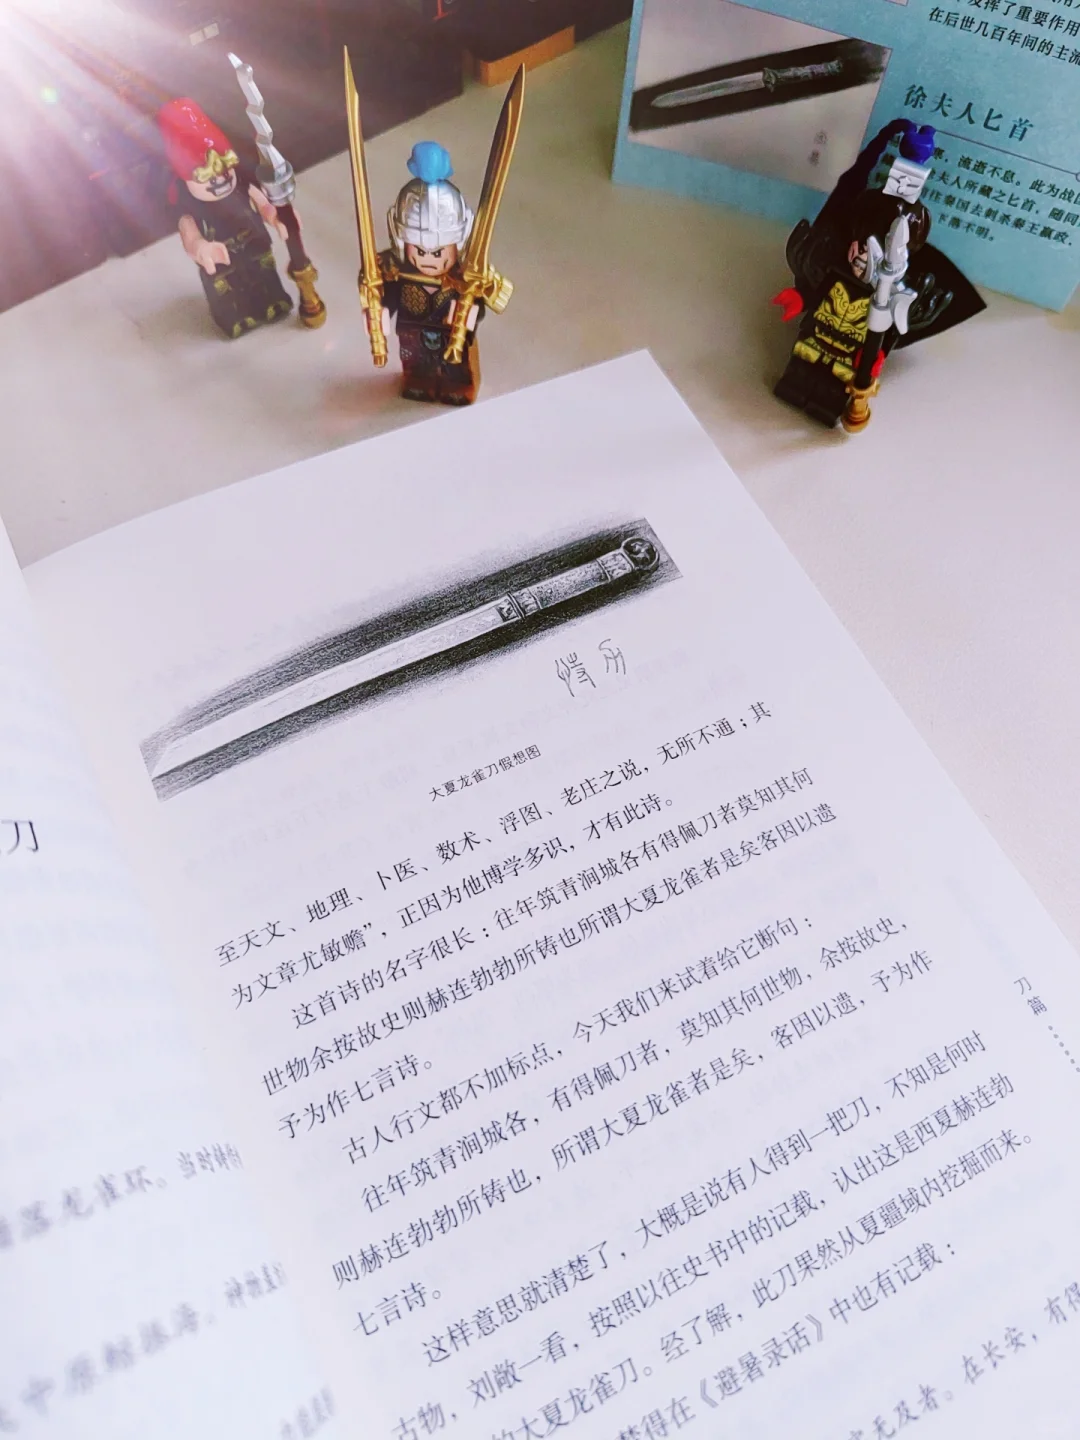 发挥了重要作用
在后世几百年间的主流
徐夫人匕首
流逝不息。此为战
夫人所藏之匕首，随同
往秦国去刺杀秦王嬴政，
下落不明。
大夏龙雀刀假想图
至天文、地理、卜医、数术、浮图、老庄之说，无所不通；其
为文章尤敏赡”，正因为他博学多识，才有此诗。
这首诗的名字很长：往年筑青涧城各有得佩刀者莫知其何
世物余按故史则赫连勃勃所铸也所谓大夏龙雀者是矣客因以遗
予为作七言诗。
古人行文都不加标点，今天我们来试着给它断句：
往年筑青涧城各，有得佩刀者，莫知其何世物，余按故史，
则赫连勃勃所铸也，所谓大夏龙雀者是矣，客因以遗，予为作
七言诗。
这样意思就清楚了，大概是说有人得到一把刀，不知是何时
古物，刘敞一看，按照以往史书中的记载，认出这是西夏赫连勃
的大夏龙雀刀。经了解，此刀果然从夏疆域内挖掘而来。
梦得在《避暑录话》中也有记载：
无及者。在长安，有得
刀篇
刀
龙雀环。当时